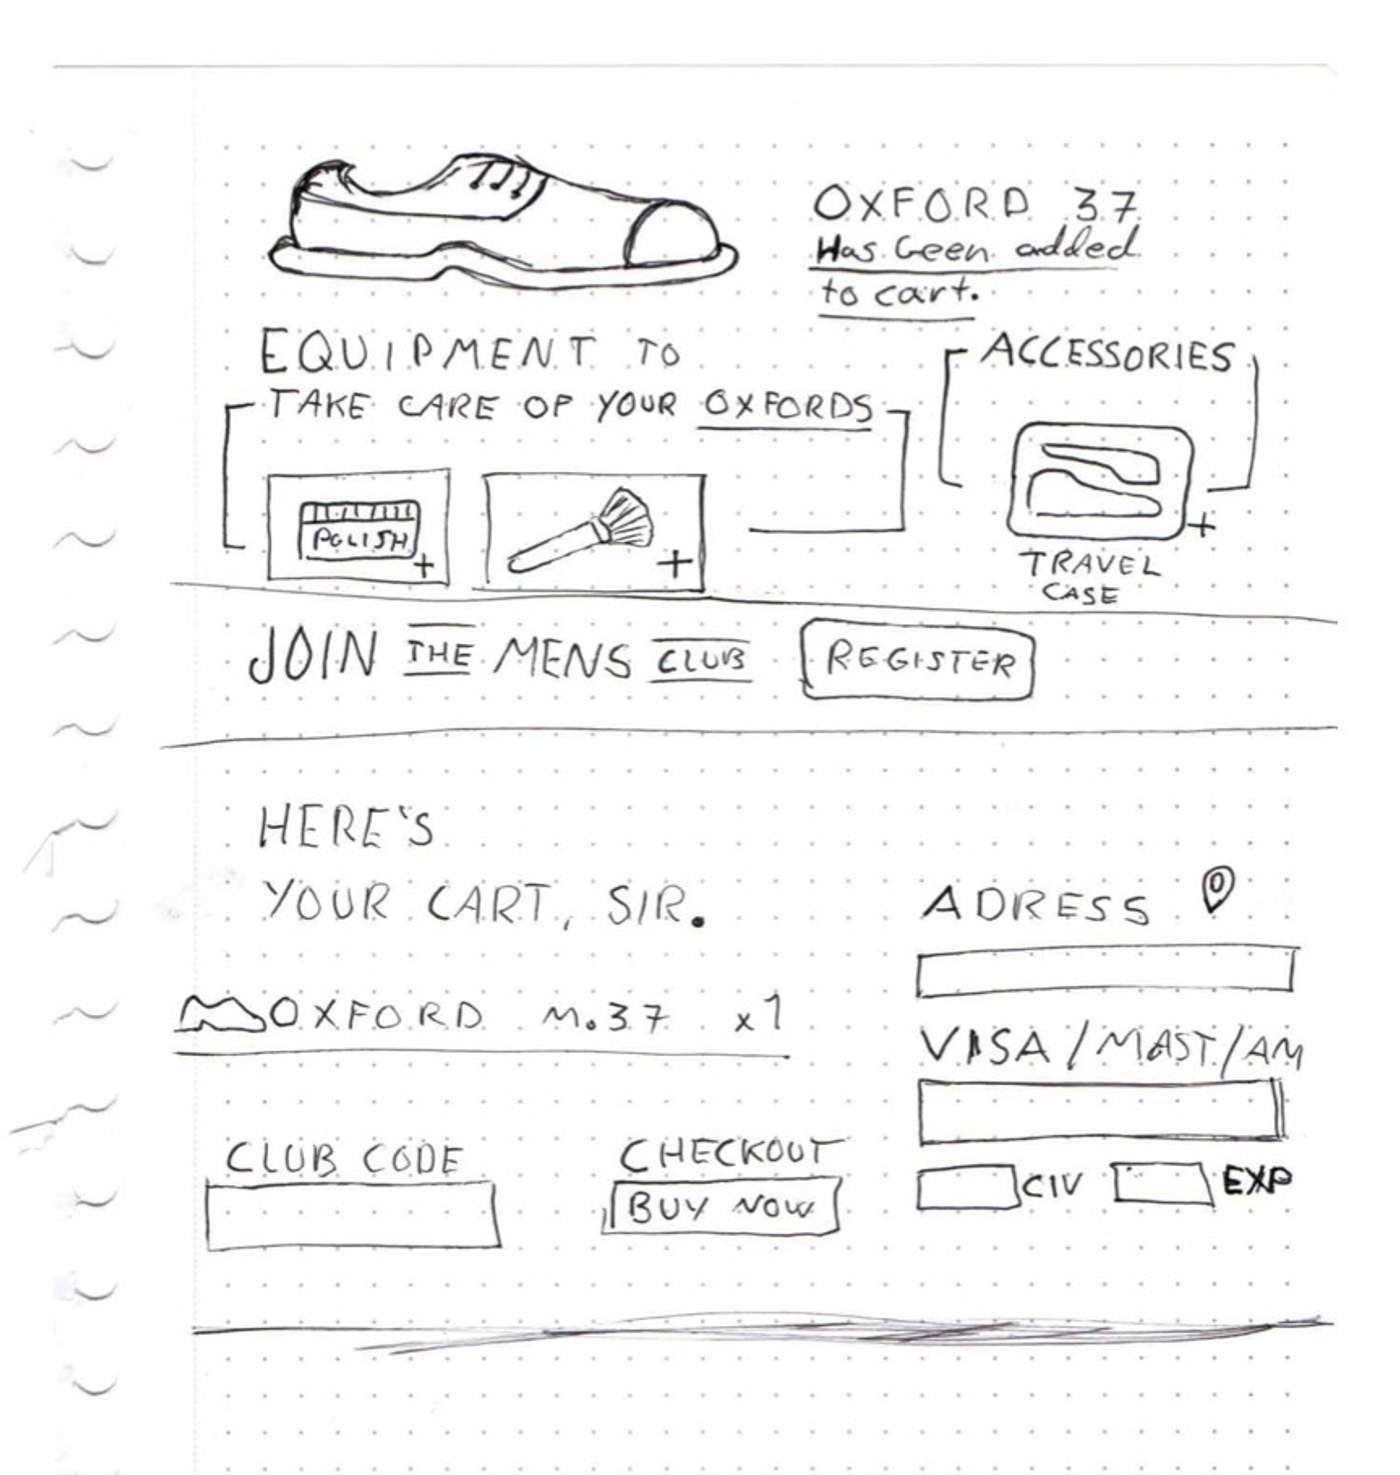 OXFORD 37
Has been added
to cart.
EQUIPMENT TO
TAKE CARE OF YOUR OXFORDS
ACCESSORIES
POLISH
+
+
+
TRAVEL
CASE
JOIN THE MENS CLUB
REGISTER
HERE'S
YOUR CART, SIR.
OXFORD M.37 x1
ADRESS
VISA/MAST/AM
CIV
EXP
CLUB CODE
CHECKOUT
BUY NOW